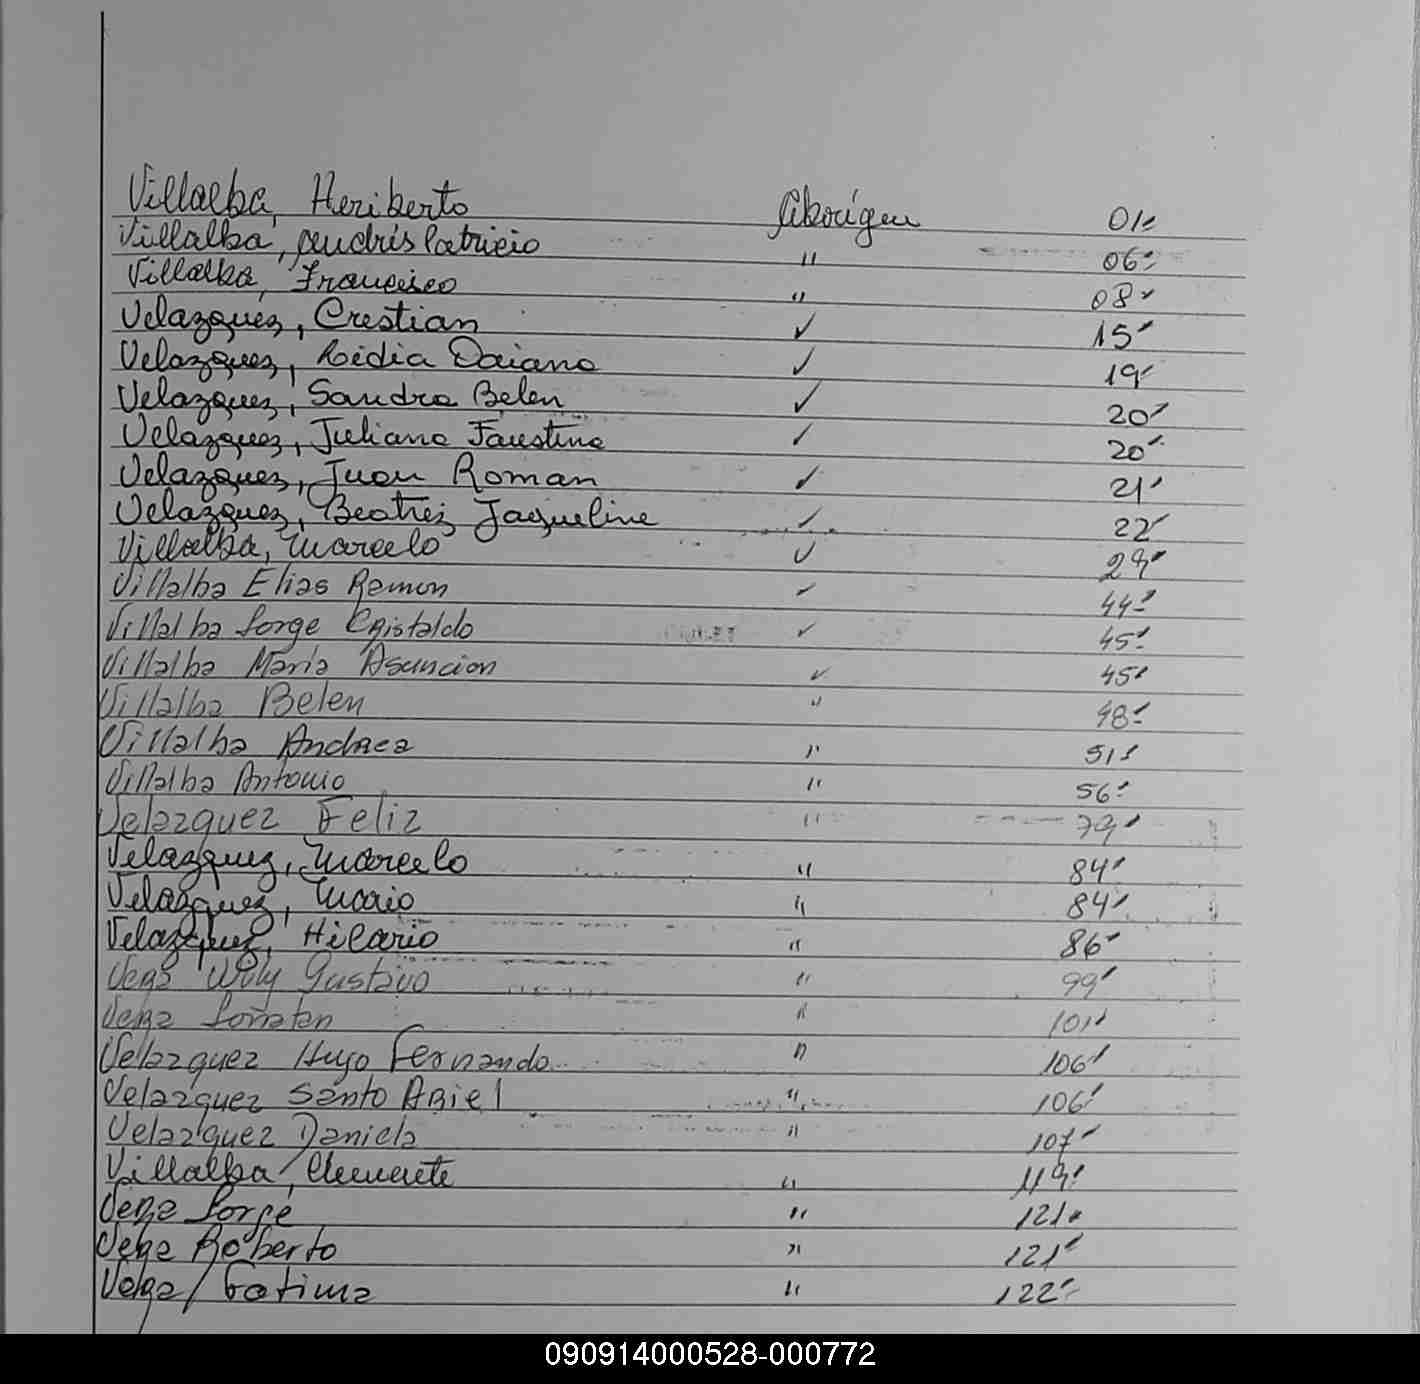 Villalba, Heriberto Aborígen 01
Villalba, Andrés Patricio " 06
Villalba, Francisco " 08
Velazquez, Crestian ✓ 15
Velazquez, Lidia Daiana ✓ 19
Velazquez, Sandra Belen ✓ 20
Velazquez, Juliana Faustina ✓ 20
Velazquez, Juan Roman ✓ 21
Velazquez, Beatriz Jaqueline ✓ 22
Villalba, Marcelo ✓ 29
Villalba Elias Ramon ✓ 44
Villalba Jorge Cristaldo ✓ 45
Villalba María Asuncion ✓ 45
Villalba Belen " 48
Villalba Andrea " 51
Villalba Antonio " 56
Velazquez Feliz " 79
Velazquez, Marcelo " 84
Velazquez, Mario " 84
Velazquez, Hilario " 86
Vega Wily Gustavo " 99
Vega Jonatan " 101
Velazquez Hugo Fernando " 106
Velazquez Santo Ariel " 106
Velazquez Daniela " 107
Villalba, Clemente " 119
Vega Jorge " 121
Vega Roberto " 121
Vega Fatima " 122
090914000528-000772